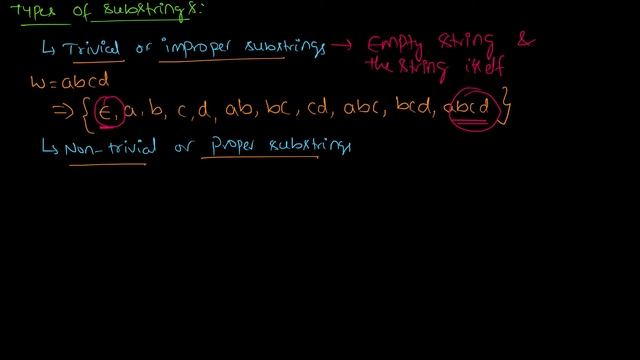 Types of substrings:
↳ Trivial or improper substrings → Empty string &
the string itself
w = abcd
⇒ { ϵ, a, b, c, d, ab, bc, cd, abc, bcd, abcd }
↳ Non-trivial or proper substrings